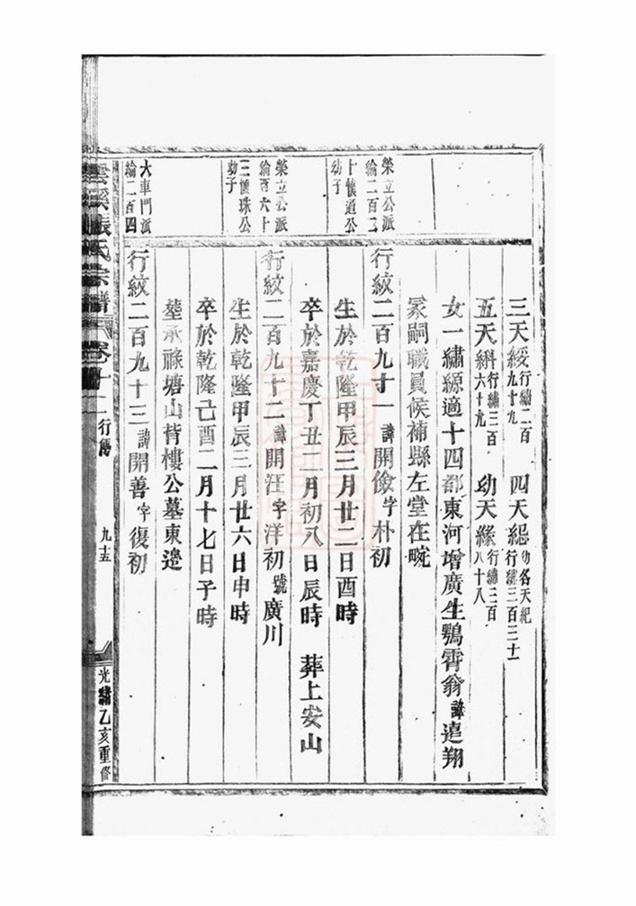 三天綬行繡二百九十九 四天緦幼名天紀行繡三百三十一
五天緢行繡三百六十九 幼天緣行繡三百八十八
女一繡縓適十四都東河增廣生鶚霄翁諱遠翔
冡嗣職員候補縣左堂在畹
榮立公派綸二百二十懷道公幼子
行紋二百九十一諱開儉字朴初
生於乾隆甲辰三月廿二日酉時
卒於嘉慶丁丑二月初八日辰時 葬上安山
榮立公派綸百六十三懷珠公幼子
行紋二百九十二諱開汪字洋初號廣川
生於乾隆甲辰三月廿六日申時
卒於乾隆己酉二月十七日子時
塟承祿塘山背樓公墓東邊
大車門派綸二百四
行紋二百九十三諱開善字復初
張氏宗譜 卷十二 行傳 九十五 光緒乙亥重修